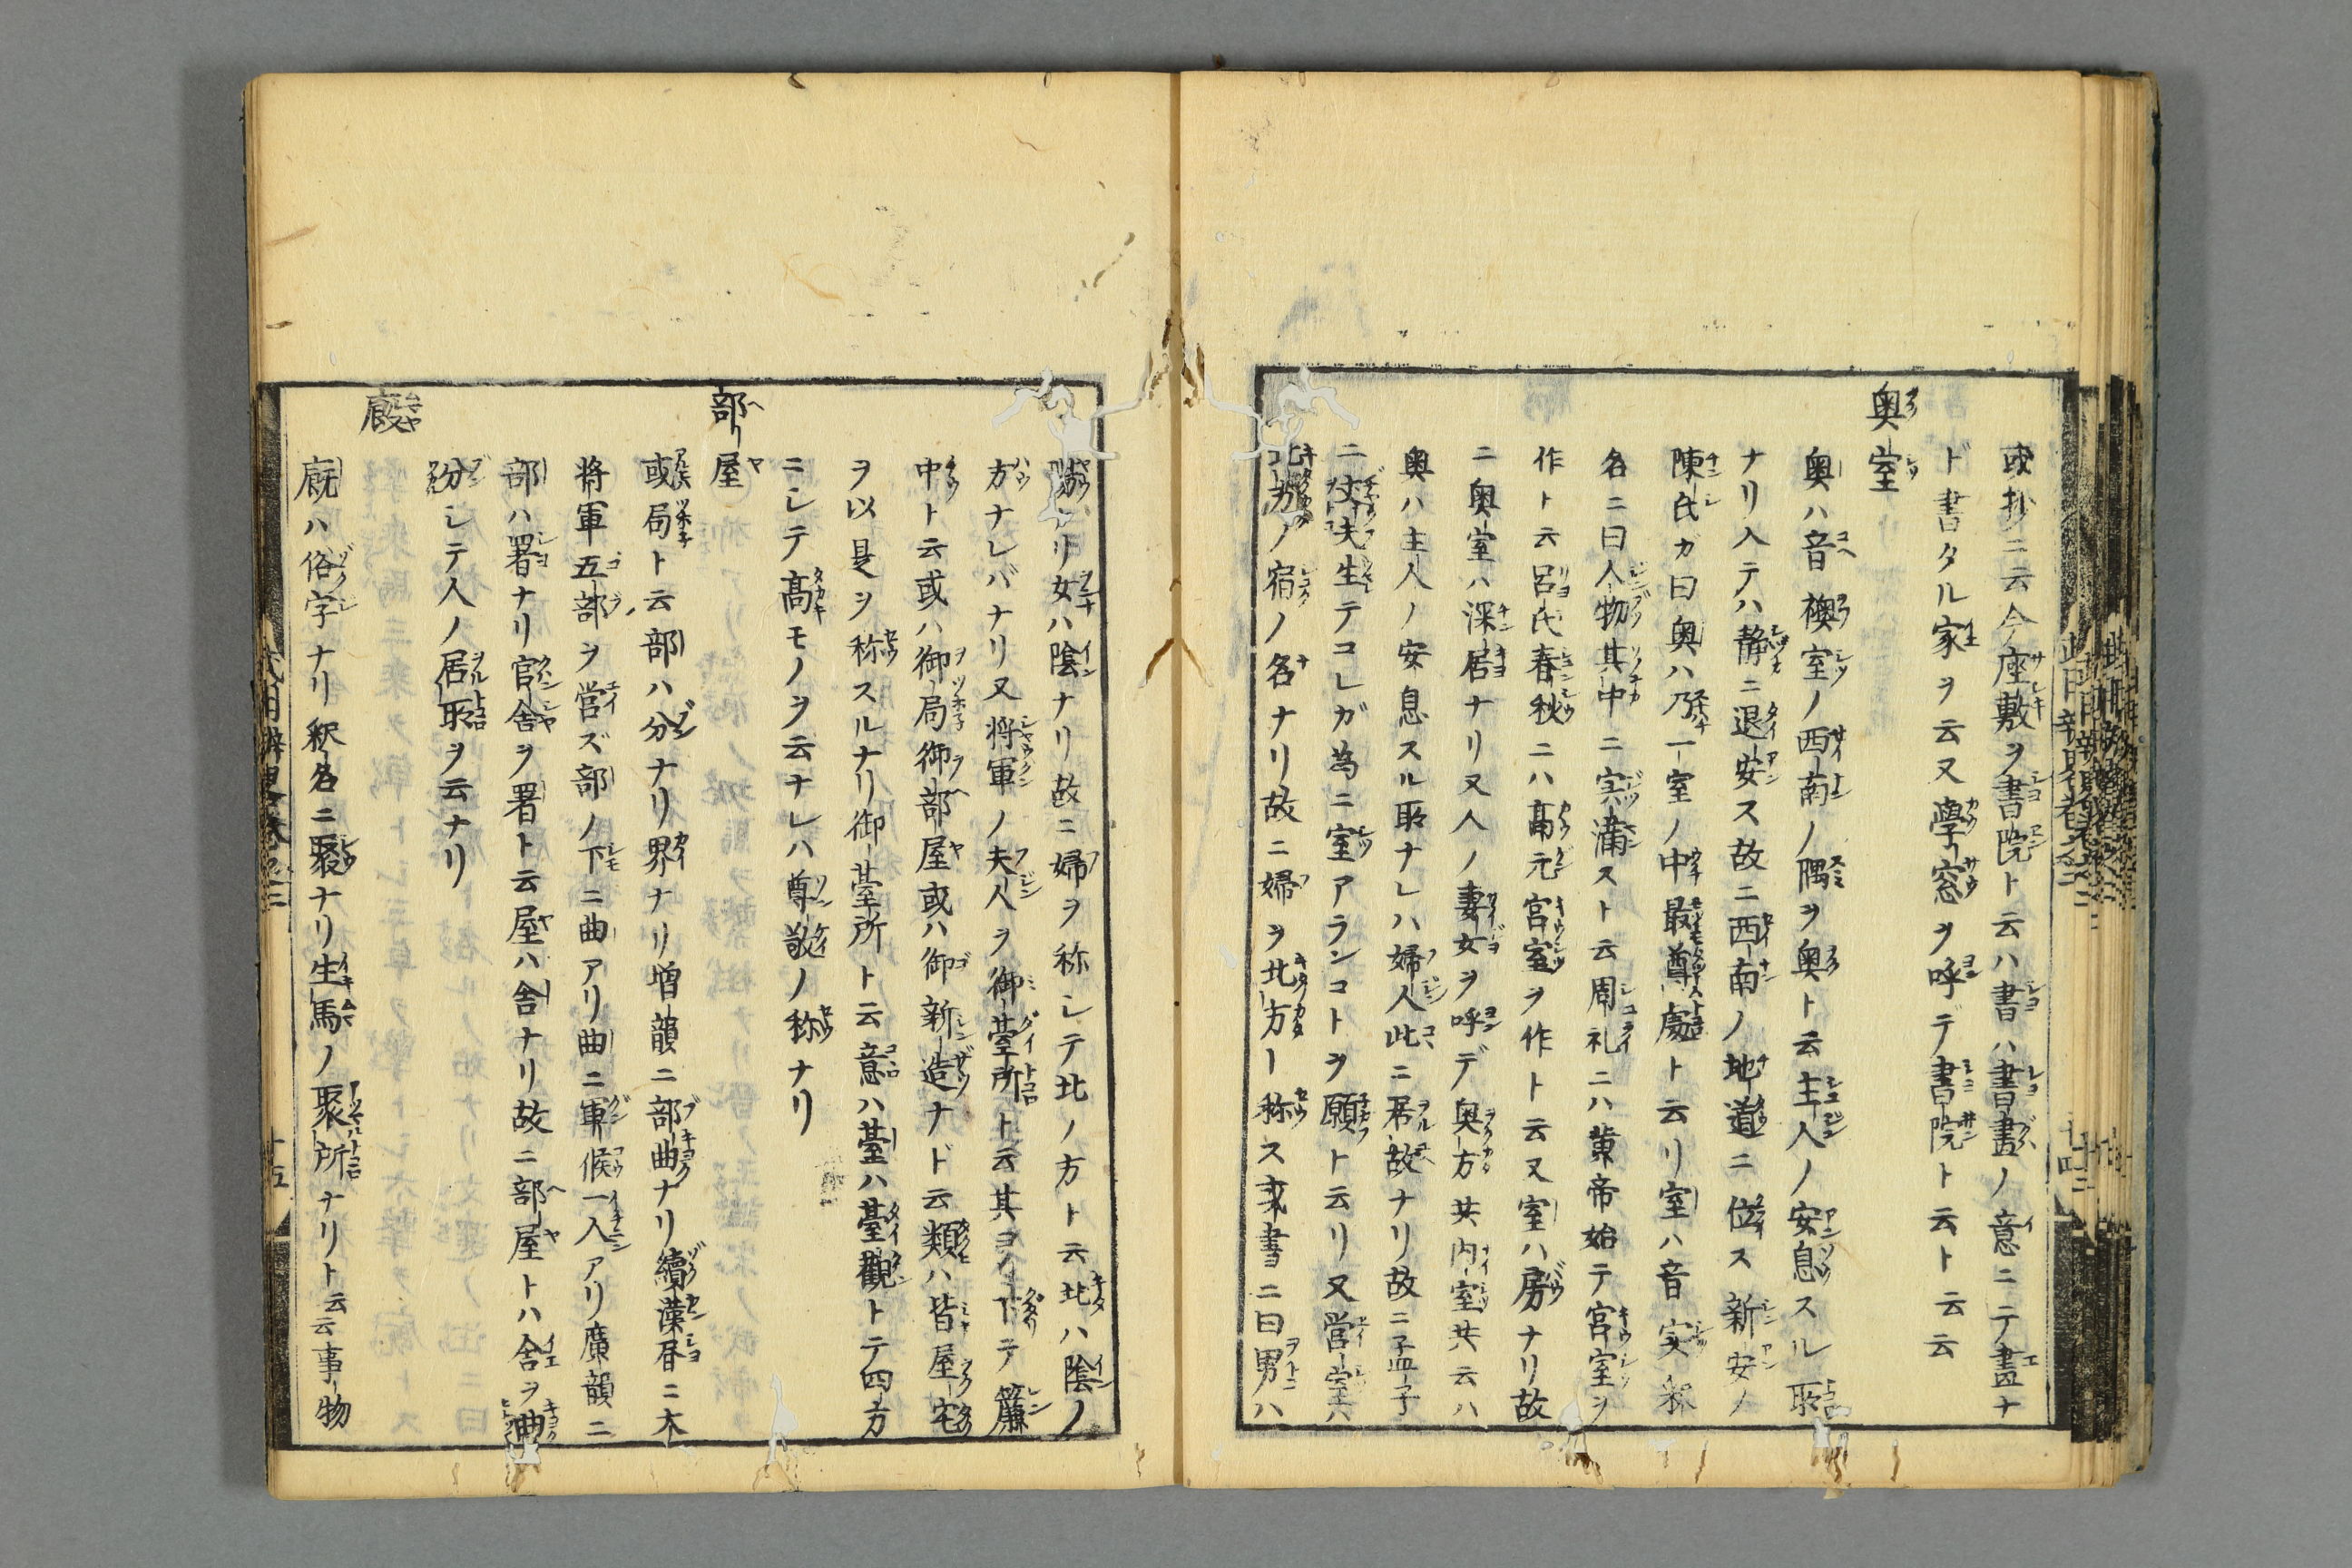 或抄ニ云今座敷ヲ書院ト云ハ書ハ書畫ノ意ニテ畫ナ
ド書タル家ヲ云又學窓ヲ呼デ書院ト云ト云云
奥室
奥ハ音襖室ノ西南ノ隅ヲ奥ト云主人ノ安息スル所
ナリ入テハ静ニ退安ス故ニ西南ノ地道ニ位ス新安ノ
陳氏ガ曰奥ハ乃一室ノ中最尊處ト云リ室ハ音実釈
名ニ曰人物其中ニ実滿スト云周礼ニハ黄帝始テ宮室ヲ
作ト云呂氏春秋ニハ高元宮室ヲ作ト云又室ハ房ナリ故
ニ奥室ハ深居ナリ又人ノ妻女ヲ呼デ奥方共内室共云ハ
奥ハ主人ノ安息スル所ナレハ婦人此ニ居故ナリ故ニ孟子
ニ丈夫生テコレガ為ニ室アランコトヲ願ト云リ又営室ハ
北方ノ宿ノ名ナリ故ニ婦ヲ北方ト称ス又書ニ曰男ハ
陽ナリ女ハ陰ナリ故ニ婦ヲ称シテ北ノ方ト云北ハ陰ノ
方ナレバナリ又将軍ノ夫人ヲ御臺所ト云其ヨリ下テ簾
中ト云或ハ御局御部屋或ハ御新造ナド云類ハ皆屋宅
ヲ以是ヲ称スルナリ御臺所ト云意ハ臺ハ臺觀トテ四方
ニシテ高キモノヲ云ナレハ尊敬ノ称ナリ
部リ屋
或局ト云部ハ分ナリ界ナリ増韻ニ部曲ナリ續漢書ニ大
将軍五部ヲ営ズ部ノ下ニ曲アリ曲ニ軍候一人アリ廣韻ニ
部ハ署ナリ官舎ヲ署ト云屋ハ舎ナリ故ニ部屋トハ舎ヲ曲
分シテ人ノ居所ヲ云ナリ
廐
廐ハ俗字ナリ釈名ニ聚ナリ生馬ノ聚所ナリト云云事物